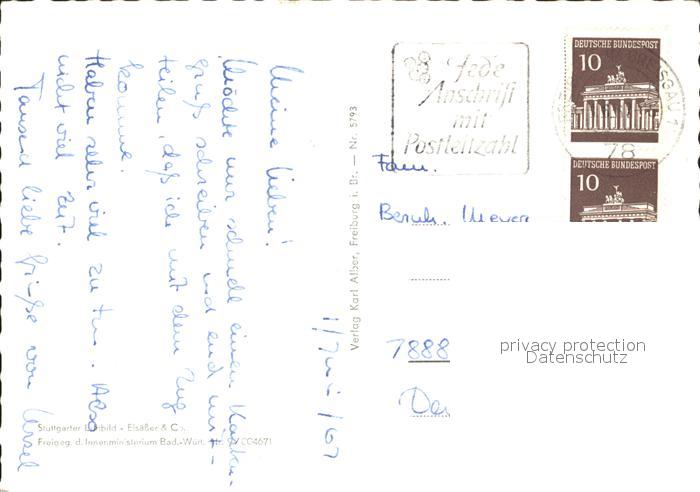 Meine Lieben!
Möchte nur schnell einen Karten-
gruß schreiben und euch mit-
teilen, daß ich mit dem Zug
komme.
Haben sehr viel zu tun. Also
nicht viel Zeit.
Tausend liebe Grüße von Ursel
1/Juni/67
Verlag Karl Alber, Freiburg i. Br. — Nr. 5793
Stuttgarter Luftbild - Elsäßer & Co.
Freigeg. d. Innenministerium Bad.-Würt. Nr.
Jede
Anschrift
mit
Postleitzahl
DEUTSCHE BUNDESPOST
10
78
DEUTSCHE BUNDESPOST
10
Fam.
Bernh. Meyer
7888
privacy protection
Datenschutz